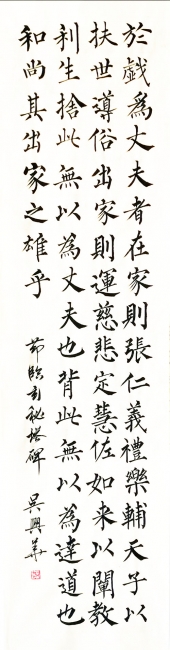 於戲為丈夫者在家則張仁義禮樂輔天子以
扶世導俗出家則運慈悲定慧佐如来以闡教
利生捨此無以為丈夫也背此無以為達道也
和尚其出家之雄乎
節臨玄秘塔碑
吴興華